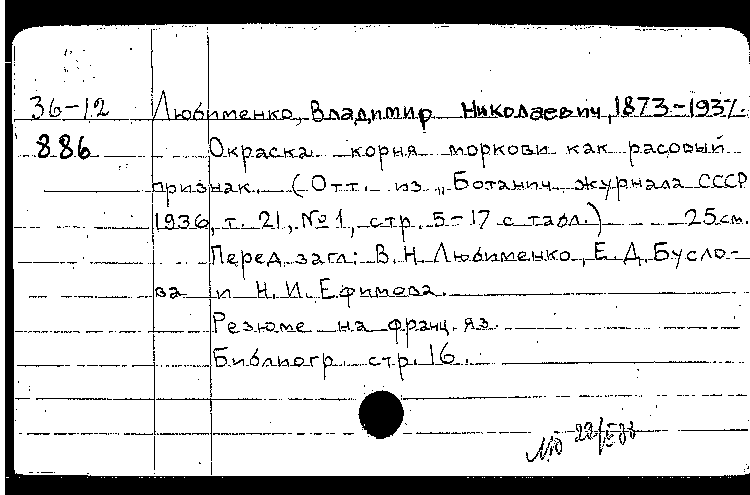 36-12 Любименко, Владимир Николаевич, 1873-1937.
886 Окраска корня моркови как расовый
признак. (Отт. из „Ботанич. журнала СССР
1936, т. 21, №1, стр. 5-17 с табл.) 25см.
Перед загл: В.Н. Любименко, Е.Д. Бусло-
ва и Н.И. Ефимова.
Резюме на франц. яз.
Библиогр. стр. 16.